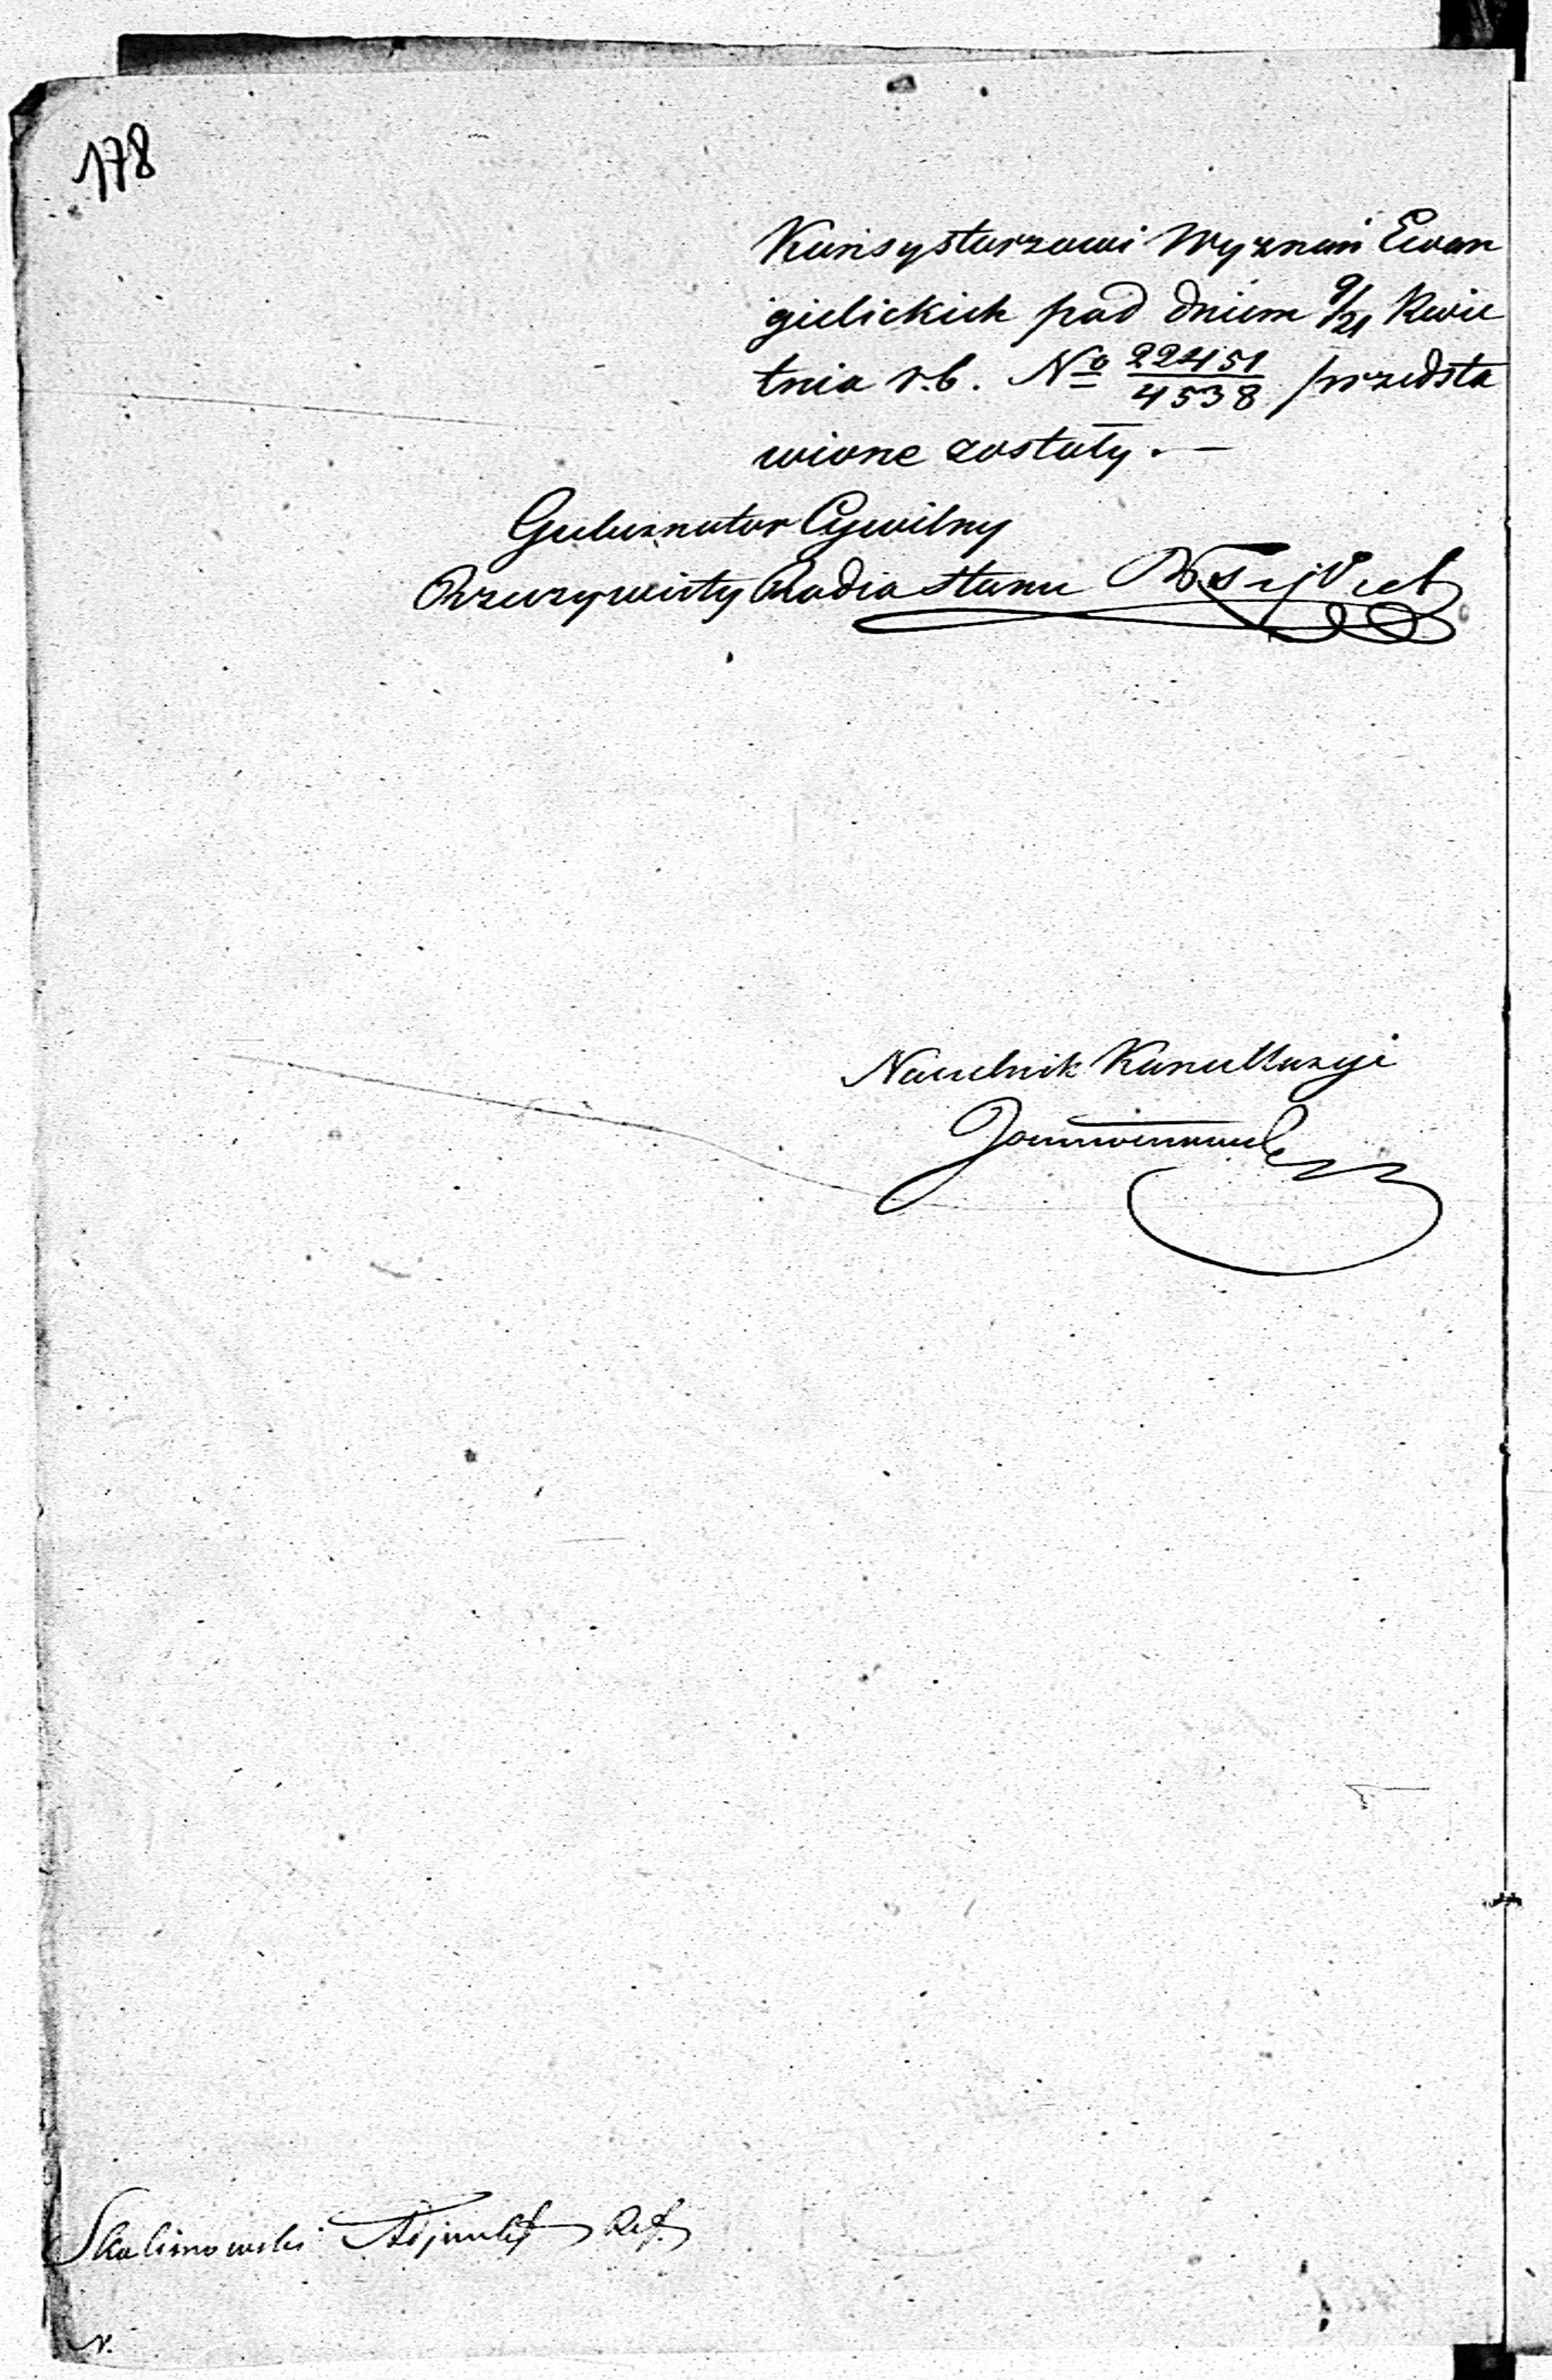 178
Konsystorzowi Wyznań Ewan
gielickich pod dniem 9/21 Kwie
tnia r.b. No 22451/4538 przedsta
wione zostały. —
Gubernator Cywilny
Rzeczywisty Radca Stanu
Naczelnik Kancellaryi
Skalimowski Adjunkt Ref.
N.